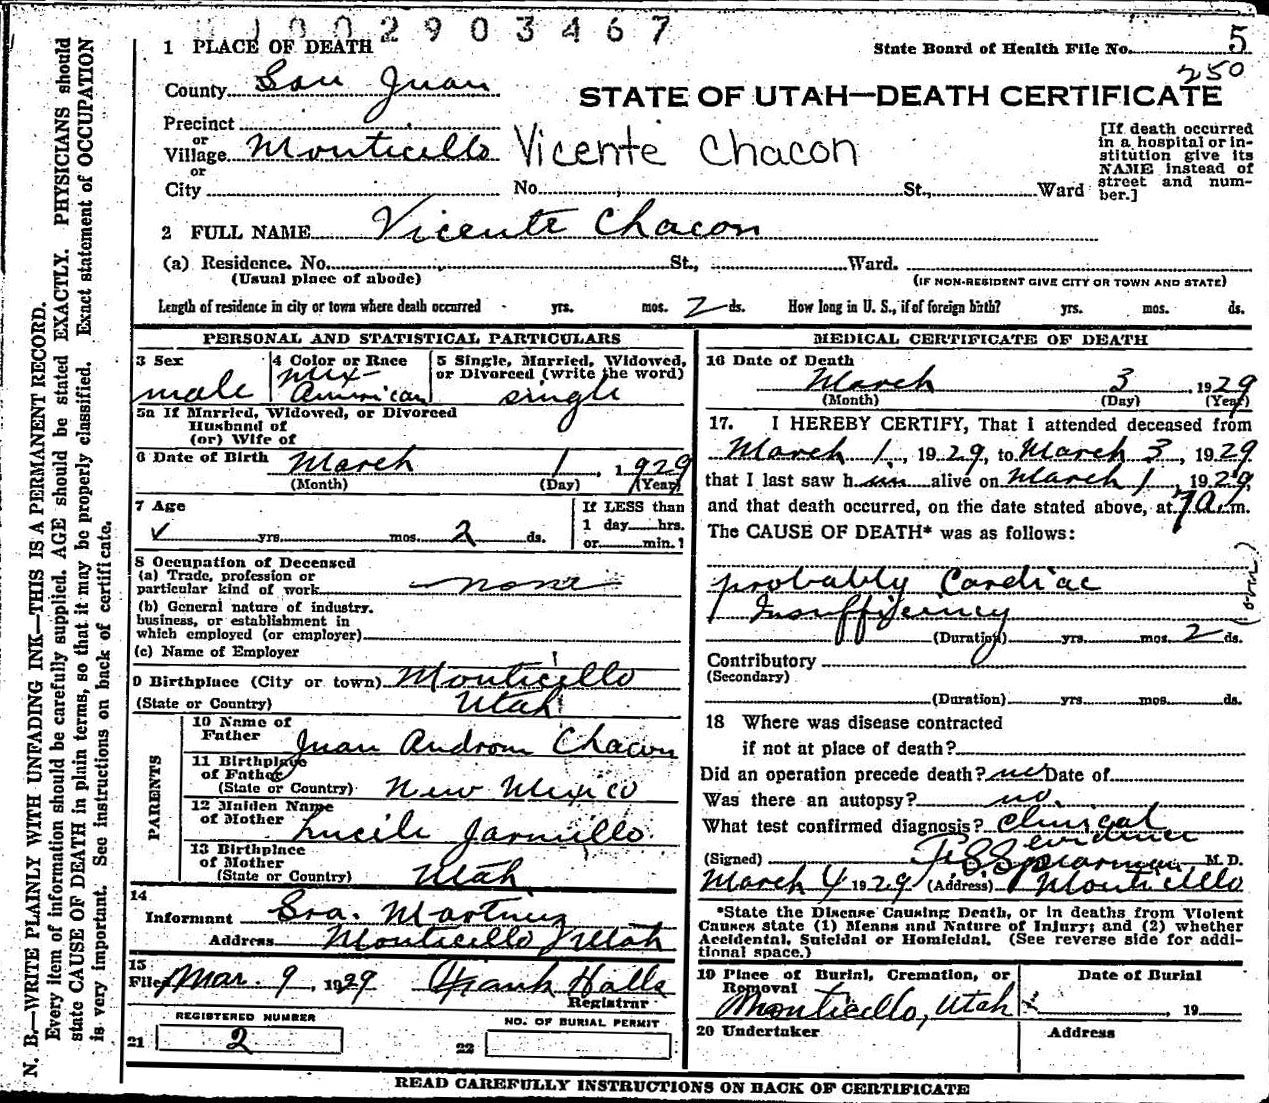 1002903467
1 PLACE OF DEATH
State Board of Health File No. 5
250
County San Juan
STATE OF UTAH—DEATH CERTIFICATE
Precinct
or
Village Monticello Vicente Chacon
or
City No. St., Ward
[If death occurred
in a hospital or in-
stitution give its
NAME instead of
street and num-
ber.]
2 FULL NAME Vicente Chacon
(a) Residence. No. St., Ward.
(Usual place of abode) (IF NON-RESIDENT GIVE CITY OR TOWN AND STATE)
Length of residence in city or town where death occurred yrs. mos. 2 ds. How long in U. S., if of foreign birth? yrs. mos. ds.
PERSONAL AND STATISTICAL PARTICULARS
3 Sex
male
4 Color or Race
Mex-
American
5 Single, Married, Widowed,
or Divorced (write the word)
single
5a If Married, Widowed, or Divorced
Husband of
(or) Wife of
6 Date of Birth March 1, 1929
(Month) (Day) (Year)
7 Age
yrs. mos. 2 ds.
If LESS than
1 day hrs.
or min.?
8 Occupation of Deceased
(a) Trade, profession or
particular kind of work none
(b) General nature of industry,
business, or establishment in
which employed (or employer)
(c) Name of Employer
9 Birthplace (City or town) Monticello
(State or Country) Utah
PARENTS
10 Name of
Father Juan Chacon
11 Birthplace
of Father
(State or Country) New Mexico
12 Maiden Name
of Mother Lucile Jarmillo
13 Birthplace
of Mother
(State or Country) Utah
14
Informant Sra. Martinez
Address Monticello Utah
15
Filed Mar. 9, 1929 Frank Halls
Registrar
REGISTERED NUMBER
21 2
NO. OF BURIAL PERMIT
22
MEDICAL CERTIFICATE OF DEATH
16 Date of Death
March 3, 1929
(Month) (Day) (Year)
17. I HEREBY CERTIFY, That I attended deceased from
March 1, 1929, to March 3, 1929
that I last saw him alive on March 1, 1929,
and that death occurred, on the date stated above, at 7 a.m.
The CAUSE OF DEATH* was as follows:
probably Cardiac
Insufficiency
(Duration) yrs. mos. 2 ds.
Contributory
(Secondary)
(Duration) yrs. mos. ds.
18 Where was disease contracted
if not at place of death?
Did an operation precede death? no Date of
Was there an autopsy? no.
What test confirmed diagnosis? Clinical
evidence
(Signed) Spearman M. D.
March 4 1929 (Address) Monticello
*State the Disease Causing Death, or in deaths from Violent
Causes state (1) Means and Nature of Injury; and (2) whether
Accidental, Suicidal or Homicidal. (See reverse side for addi-
tional space.)
19 Place of Burial, Cremation, or
Removal
Monticello, Utah
Date of Burial
, 19
20 Undertaker
Address
READ CAREFULLY INSTRUCTIONS ON BACK OF CERTIFICATE
N. B.—WRITE PLAINLY WITH UNFADING INK—THIS IS A PERMANENT RECORD.
Every item of information should be carefully supplied. AGE should be stated EXACTLY. PHYSICIANS should
state CAUSE OF DEATH in plain terms, so that it may be properly classified. Exact statement of OCCUPATION
is very important. See instructions on back of certificate.